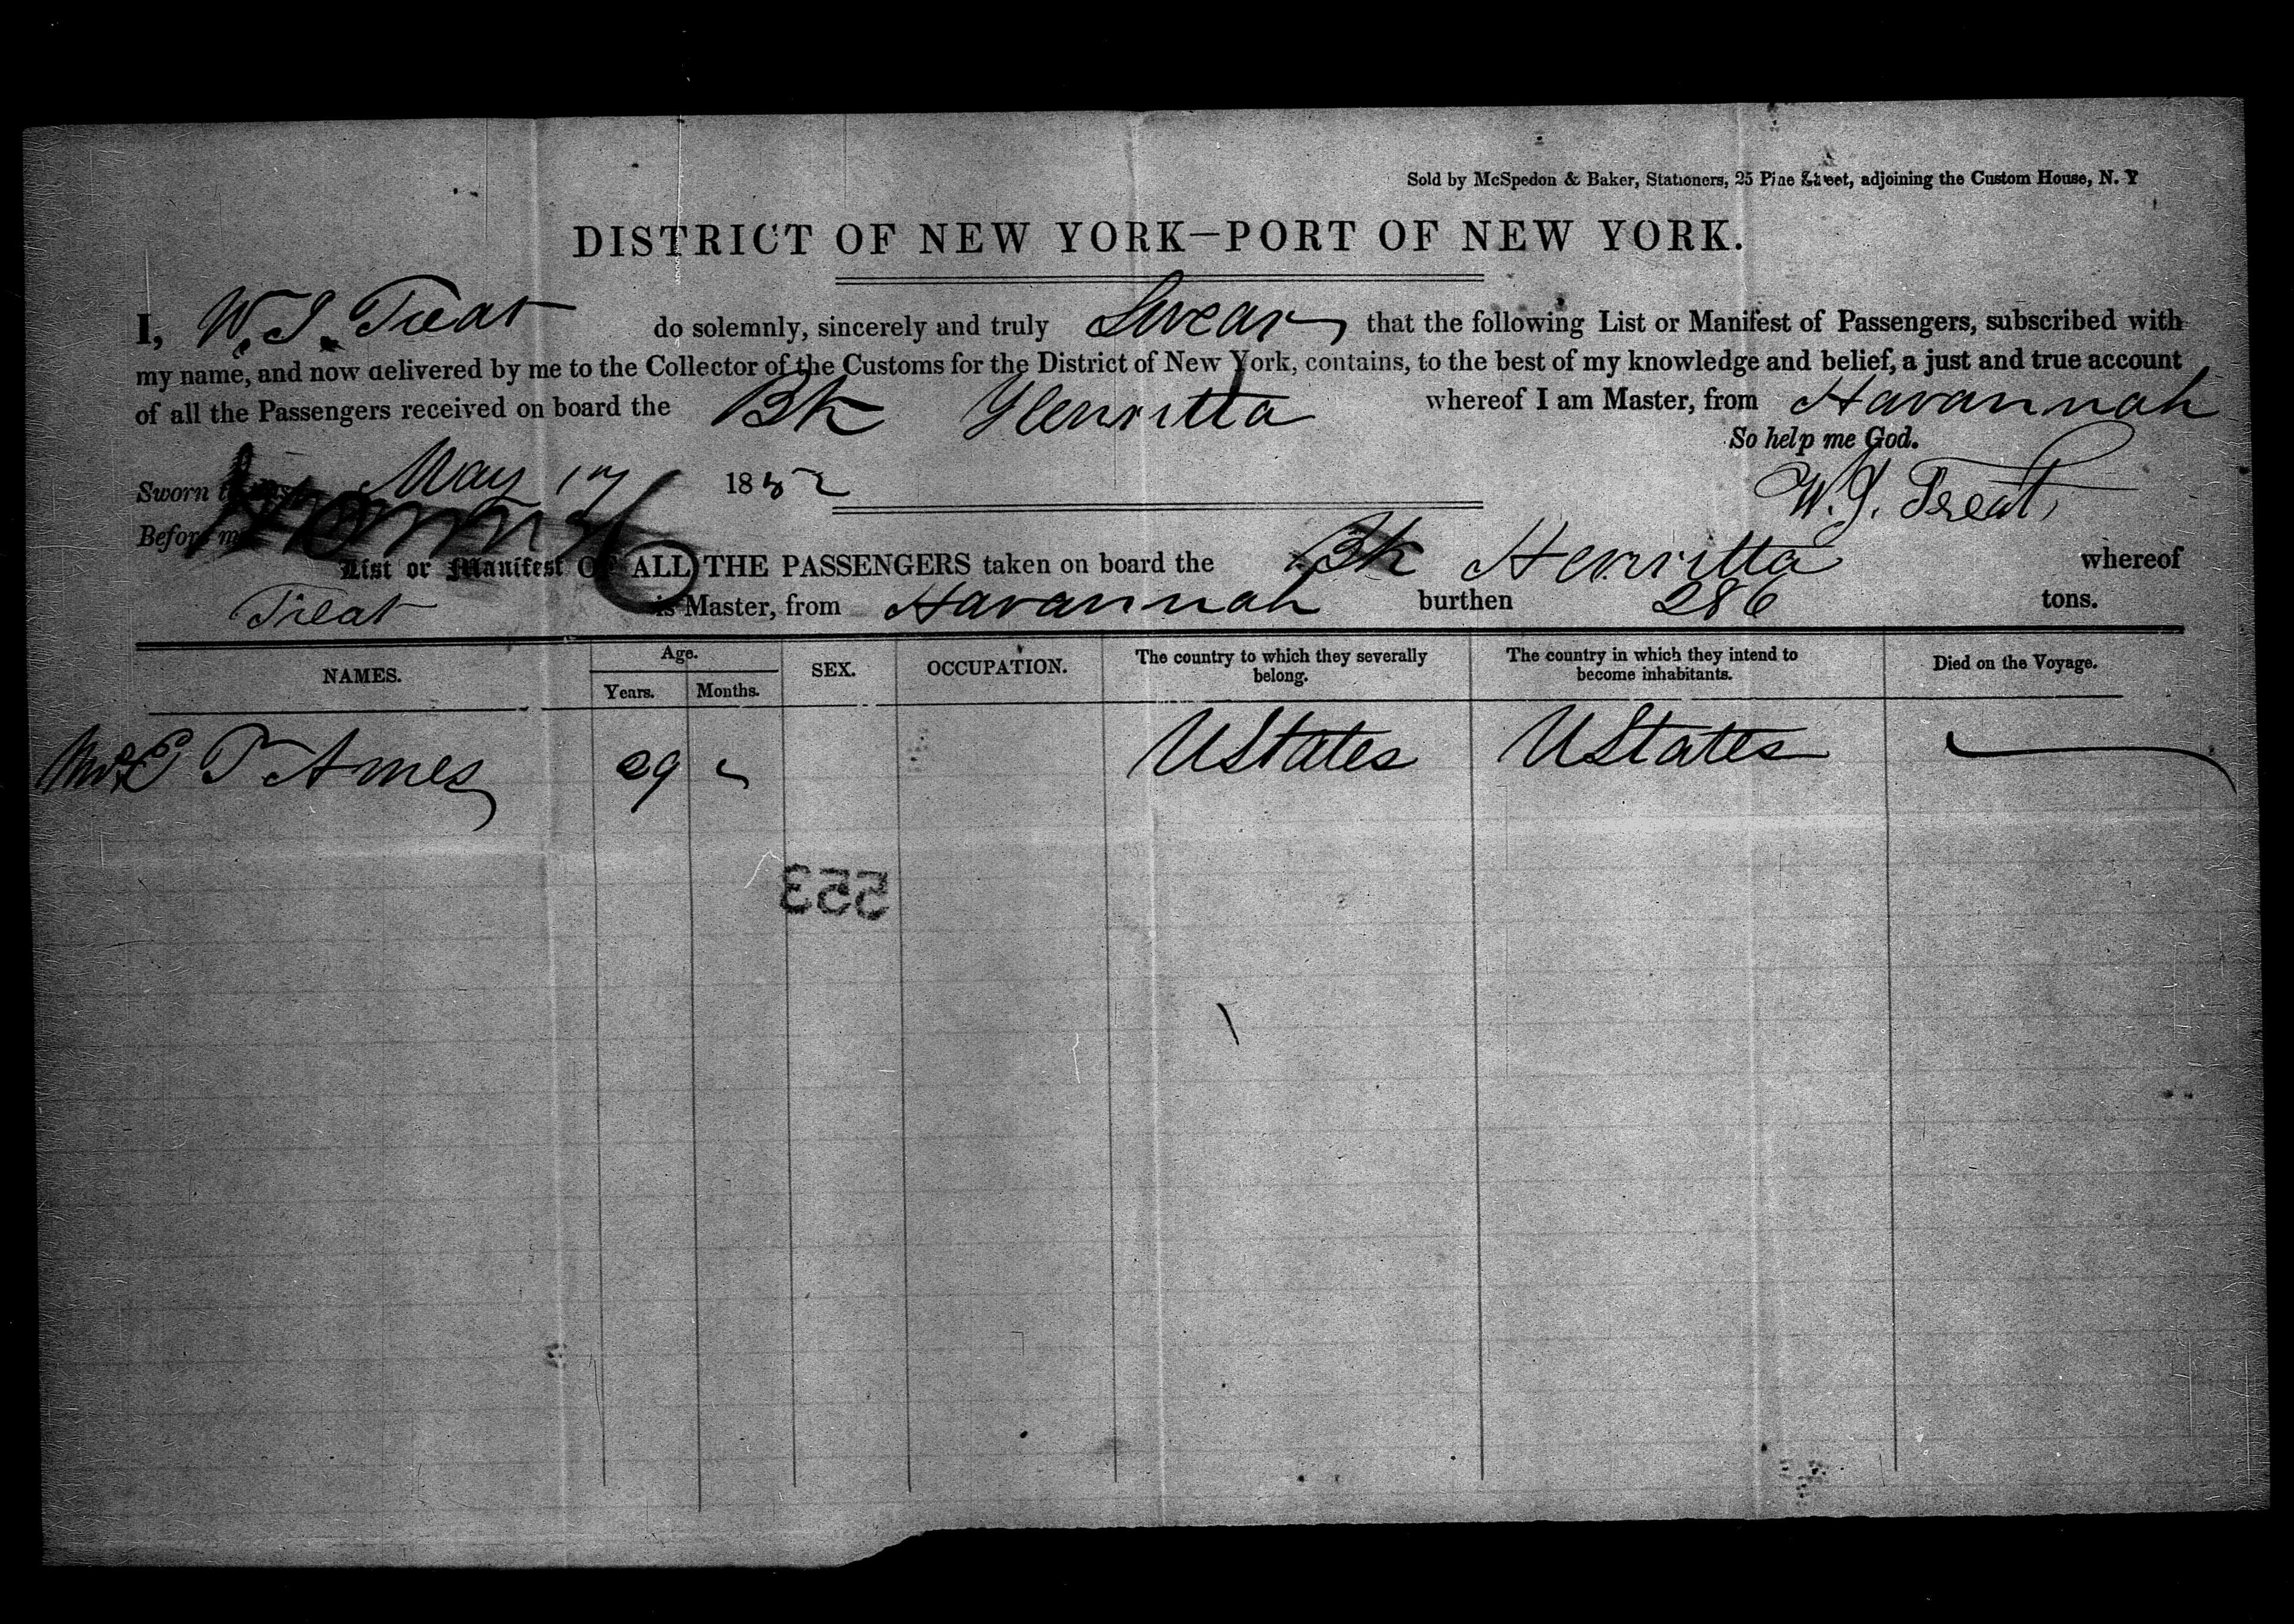 Sold by McSpedon & Baker, Stationers, 25 Pine Street, adjoining the Custom House, N. Y
DISTRICT OF NEW YORK—PORT OF NEW YORK.
I, W. J. Treat do solemnly, sincerely and truly Swear that the following List or Manifest of Passengers, subscribed with
my name, and now delivered by me to the Collector of the Customs for the District of New York, contains, to the best of my knowledge and belief, a just and true account
of all the Passengers received on board the Bk Henritta whereof I am Master, from Havannah
So help me God.
Sworn May 17 1852
W. J. Treat
Before me
List or Manifest OF ALL THE PASSENGERS taken on board the Bk Henritta whereof
Treat is Master, from Havannah burthen 286 tons.
NAMES. Age. Years. Months. SEX. OCCUPATION. The country to which they severally belong. The country in which they intend to become inhabitants. Died on the Voyage.
E T Ames 29 UStates UStates
553